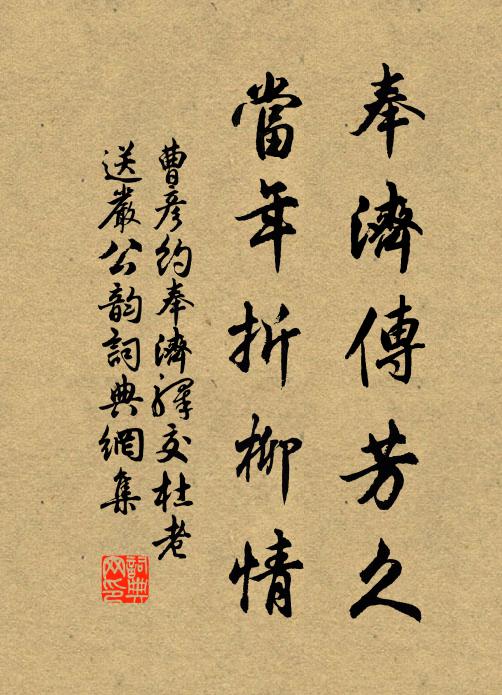 奉濟傳芳久
當年折柳情
曹彥約奉濟驛交杜老
送嚴公韵詞典網集
詞典
网印